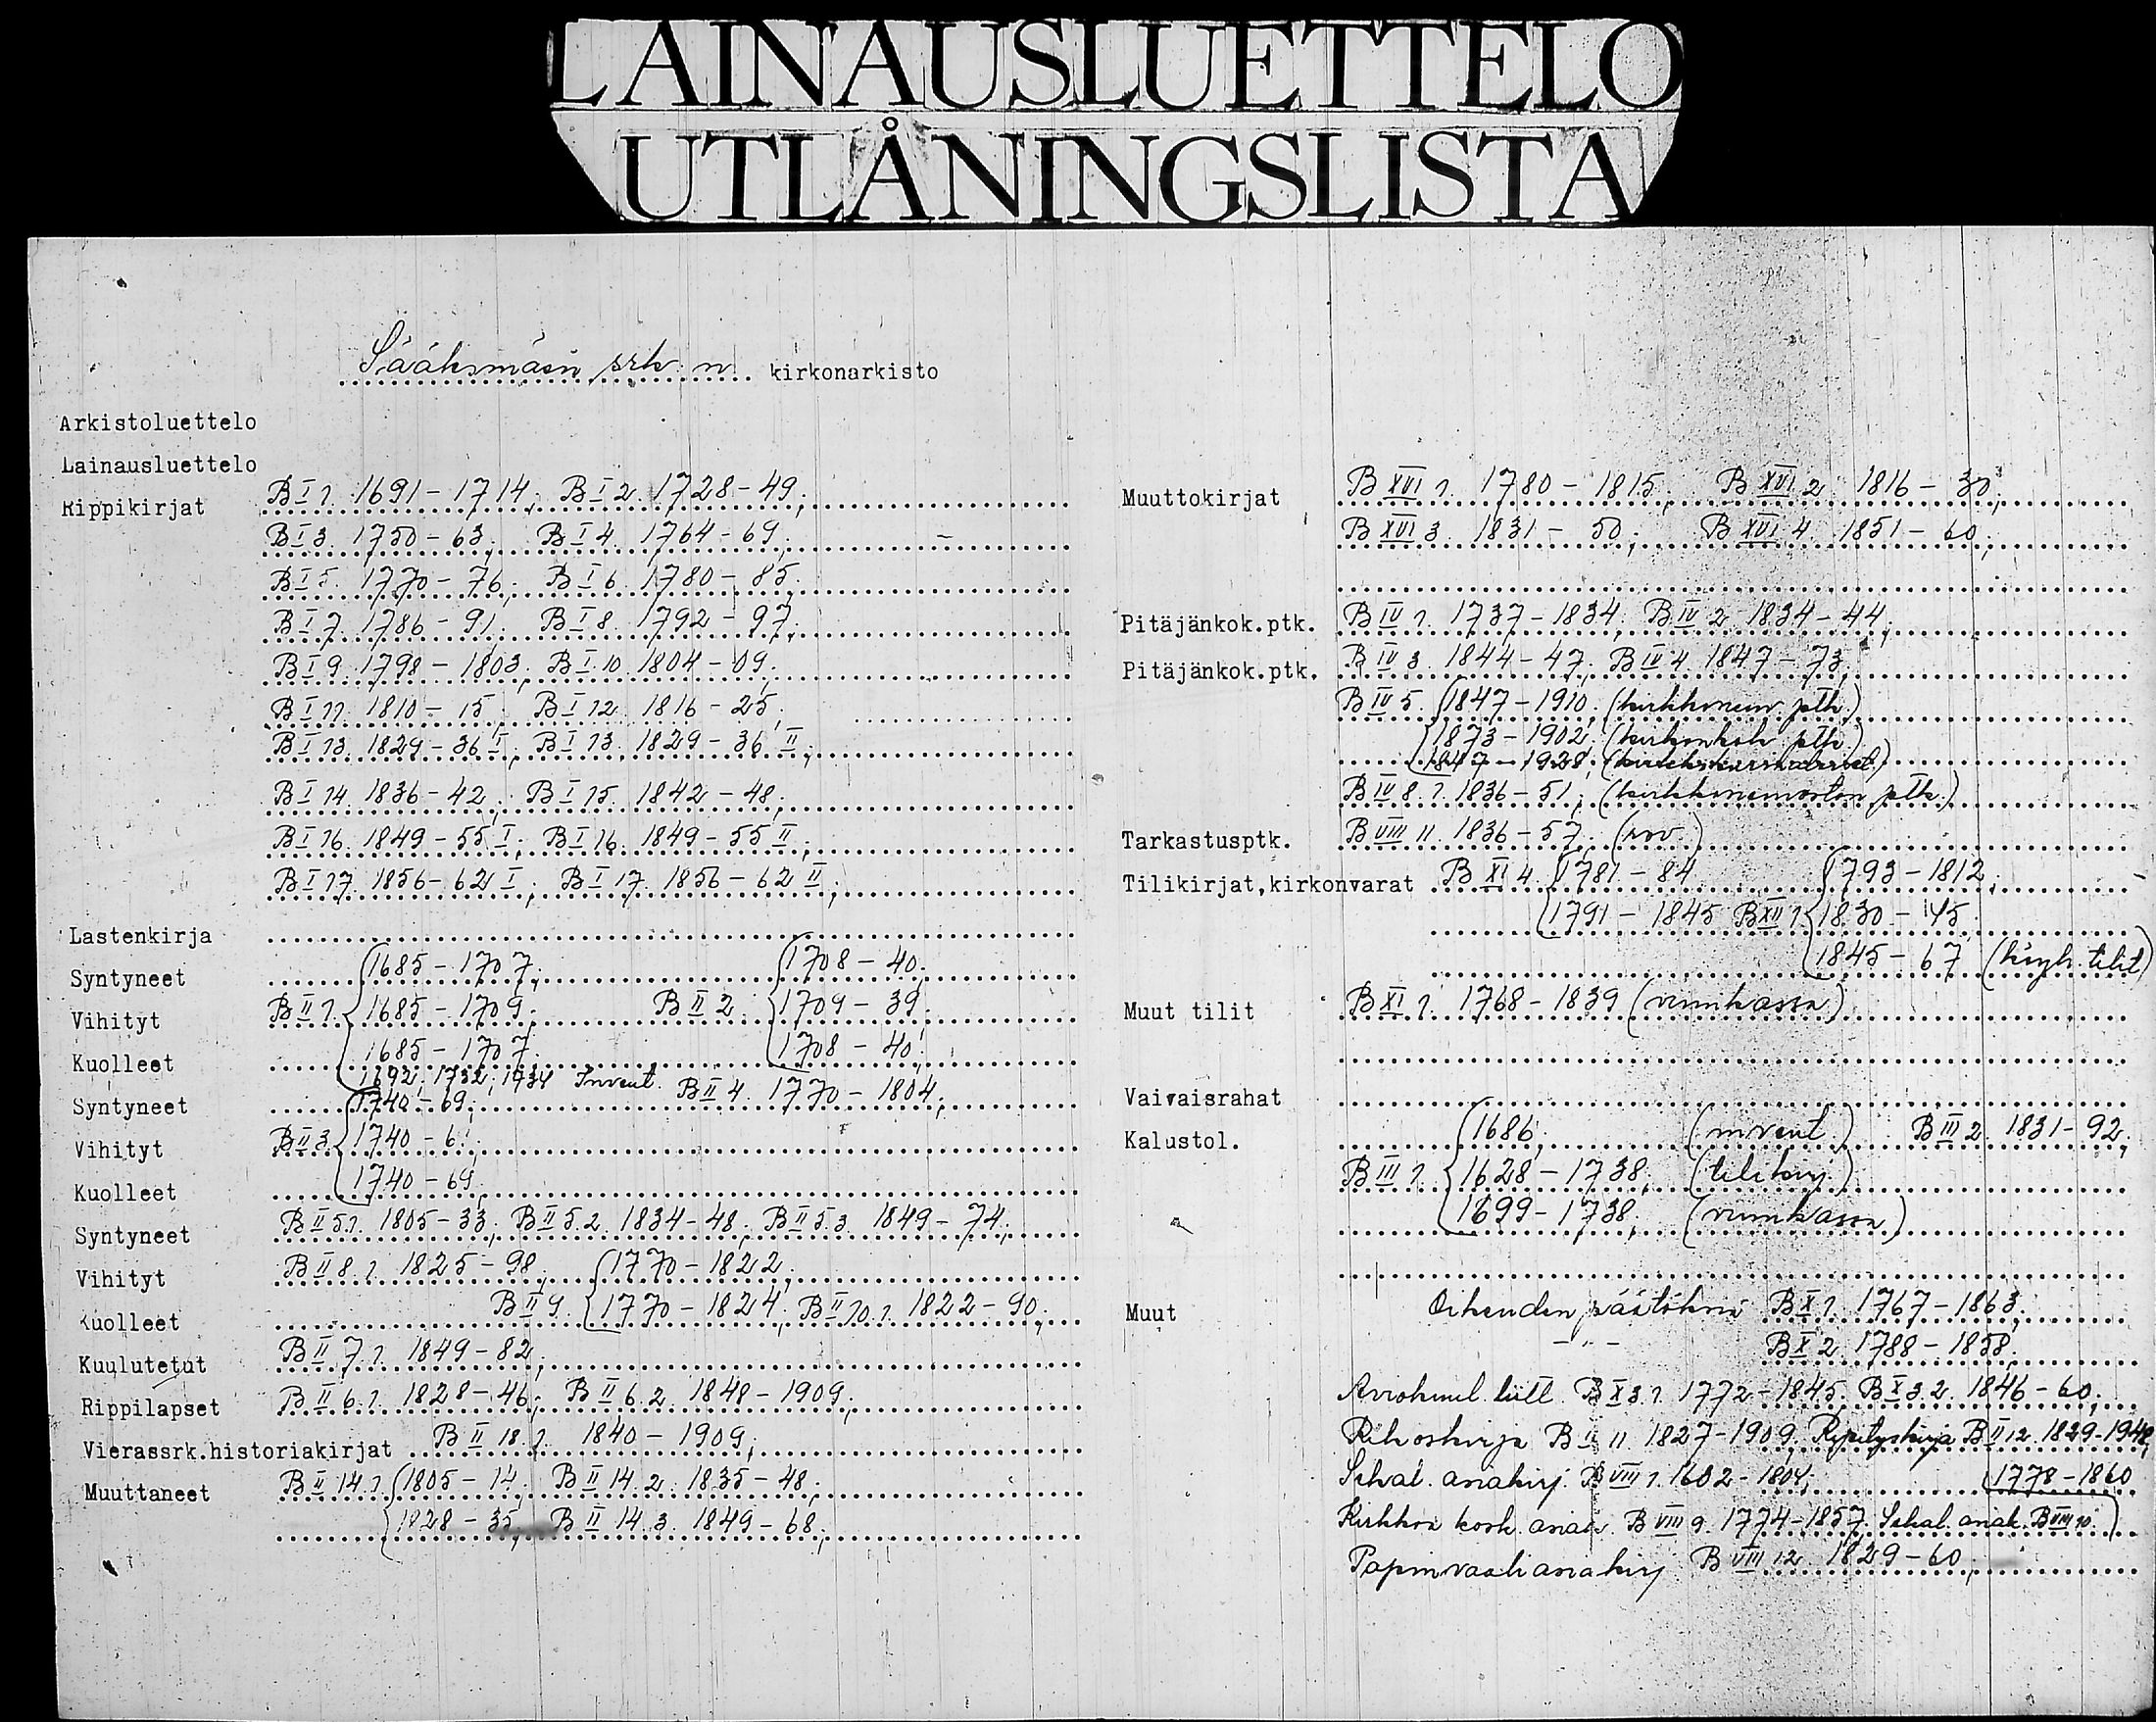 LAINAUSLUETTELO
UTLÅNINGSLISTA
Sääksmäen srk:n kirkonarkisto
Arkistoluettelo
Lainausluettelo
Rippikirjat B I 1. 1691-1714; B I 2. 1728-49;
B I 3. 1750-63; B I 4. 1764-69;
B I 5. 1770-76; B I 6. 1780-85;
B I 7. 1786-91; B I 8. 1792-97;
B I 9. 1798-1803; B I 10. 1804-09;
B I 11. 1810-15; B I 12. 1816-25;
B I 13. 1829-36 I; B I 13. 1829-36 II;
B I 14. 1836-42; B I 15. 1842-48;
B I 16. 1849-55 I; B I 16. 1849-55 II;
B I 17. 1856-62 I; B I 17. 1856-62 II;
Lastenkirja
Syntyneet 1685-1707; 1708-40;
Vihityt B II 1. 1685-1709; B II 2. 1709-39;
Kuolleet 1685-1707; 1708-40;
1692; 1732; 1734 Invent.
Syntyneet 1740-69; B II 4. 1770-1804;
Vihityt B II 3. 1740-6
Kuolleet 1740-69;
Syntyneet B II 5.1. 1805-33; B II 5.2. 1834-48; B II 5.3. 1849-74;
Vihityt B II 8.1. 1825-98; 1770-1822;
Kuolleet B II 9. 1770-1824; B II 10.1. 1822-90;
Kuulutetut B II 7.1. 1849-82;
Rippilapset B II 6.1. 1828-46; B II 6.2. 1848-1909;
Vierassrk.historiakirjat B II 18.1. 1840-1909;
Muuttaneet B II 14.1. 1805-14; B II 14.2. 1835-48;
1828-35; B II 14.3. 1849-68;
Muuttokirjat B XVI 1. 1780-1815; B XVI 2. 1816-30;
B XVI 3. 1831-50; B XVI 4. 1851-60;
Pitäjänkok.ptk. B IV 1. 1737-1834; B IV 2. 1834-44;
Pitäjänkok.ptk. B IV 3. 1844-47; B IV 4. 1847-73;
B IV 5. 1847-1910; (kirkkoneuv. ptk.)
1873-1902; (kirkonkok. ptk.)
1847-1928;
B IV 8.1. 1836-51; (kirkkoneuvoston ptk.)
Tarkastusptk. B VIII 11. 1836-57; (rov.)
Tilikirjat,kirkonvarat B XI 4. 1781-84 1793-1812;
1791-1845 B XII 1. 1830-45;
1845-67 (kirjk. tilit)
Muut tilit B XI 1. 1768-1839 (ruunkassa)
Vaivaisrahat
Kalustol. 1686; (invent.) B III 2. 1831-92;
B III 1. 1628-1738; (tilikirj.)
1699-1738;
Muut Oikeuden päätöksiä B X 1. 1767-1863;
-"- B X 2. 1788-1858;
Arviokunl. liitt. B X 3.1. 1772-1845; B X 3.2. 1846-60;
Rikoskirja B II 11. 1827-1909; Ripityskirja B II 12. 1829-1948;
Sekal. asiakirj. B VIII 1. 1602-1804; 1778-1860
Kirkkoa kosk. asiak. B VIII 9. 1774-1857; Sekal. asiak. B VIII 10.
Papinvaali asiakirj. B VIII 12. 1829-60;